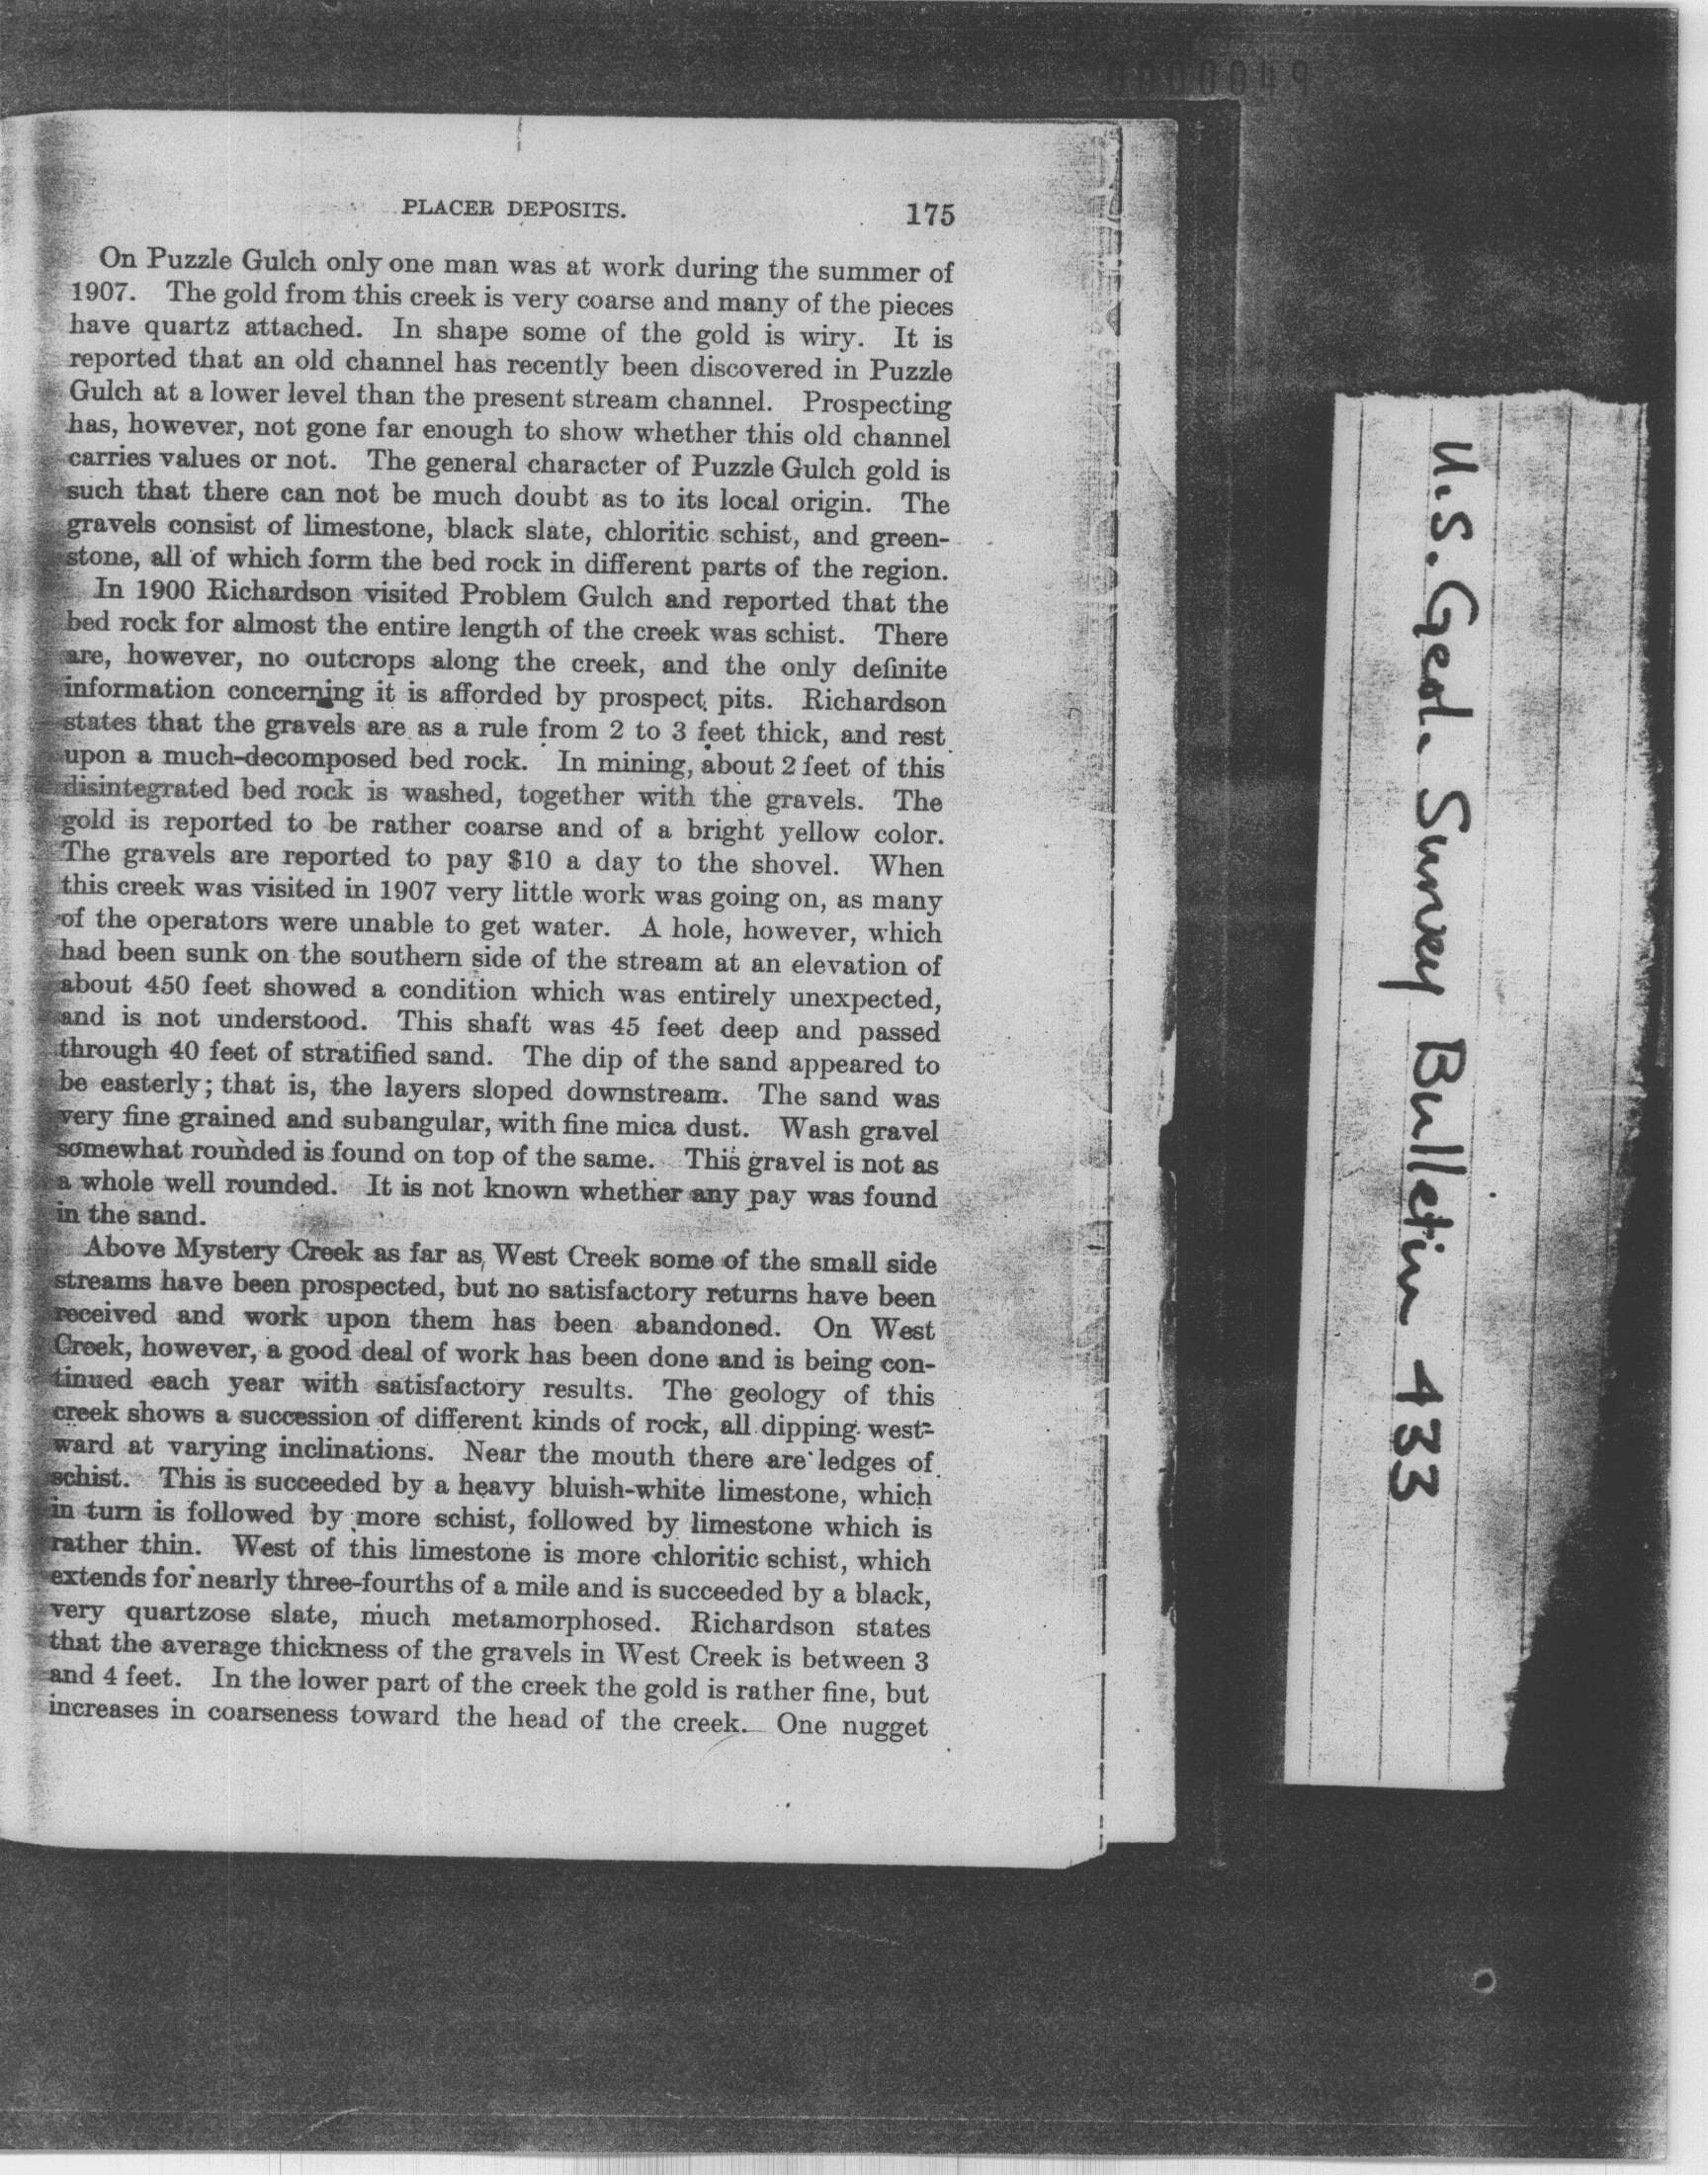 0000049
PLACER DEPOSITS.
175
On Puzzle Gulch only one man was at work during the summer of
1907. The gold from this creek is very coarse and many of the pieces
have quartz attached. In shape some of the gold is wiry. It is
reported that an old channel has recently been discovered in Puzzle
Gulch at a lower level than the present stream channel. Prospecting
has, however, not gone far enough to show whether this old channel
carries values or not. The general character of Puzzle Gulch gold is
such that there can not be much doubt as to its local origin. The
gravels consist of limestone, black slate, chloritic schist, and green-
stone, all of which form the bed rock in different parts of the region.
In 1900 Richardson visited Problem Gulch and reported that the
bed rock for almost the entire length of the creek was schist. There
are, however, no outcrops along the creek, and the only definite
information concerning it is afforded by prospect pits. Richardson
states that the gravels are as a rule from 2 to 3 feet thick, and rest
upon a much-decomposed bed rock. In mining, about 2 feet of this
disintegrated bed rock is washed, together with the gravels. The
gold is reported to be rather coarse and of a bright yellow color.
The gravels are reported to pay $10 a day to the shovel. When
this creek was visited in 1907 very little work was going on, as many
of the operators were unable to get water. A hole, however, which
had been sunk on the southern side of the stream at an elevation of
about 450 feet showed a condition which was entirely unexpected,
and is not understood. This shaft was 45 feet deep and passed
through 40 feet of stratified sand. The dip of the sand appeared to
be easterly; that is, the layers sloped downstream. The sand was
very fine grained and subangular, with fine mica dust. Wash gravel
somewhat rounded is found on top of the same. This gravel is not as
a whole well rounded. It is not known whether any pay was found
in the sand.
Above Mystery Creek as far as West Creek some of the small side
streams have been prospected, but no satisfactory returns have been
received and work upon them has been abandoned. On West
Creek, however, a good deal of work has been done and is being con-
tinued each year with satisfactory results. The geology of this
creek shows a succession of different kinds of rock, all dipping west-
ward at varying inclinations. Near the mouth there are ledges of
schist. This is succeeded by a heavy bluish-white limestone, which
in turn is followed by more schist, followed by limestone which is
rather thin. West of this limestone is more chloritic schist, which
extends for nearly three-fourths of a mile and is succeeded by a black,
very quartzose slate, much metamorphosed. Richardson states
that the average thickness of the gravels in West Creek is between 3
and 4 feet. In the lower part of the creek the gold is rather fine, but
increases in coarseness toward the head of the creek. One nugget
U.S. Geol. Survey Bulletin 433